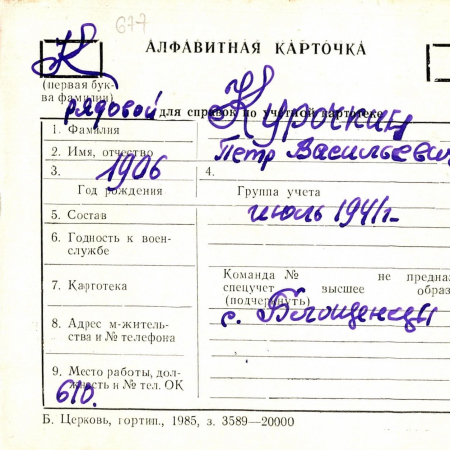 677
К
АЛФАВИТНАЯ КАРТОЧКА
(первая бук-
ва фамилии)
рядовой
для справок по учетной картотеке
1. Фамилия Курочкин
2. Имя, отчество Петр Васильеви
3. 1906
Год рождения
4.
Группа учета
5. Состав июль 1941 г.
6. Годность к воен-
службе
7. Картотека
Команда № не предна
спецучет высшее образ
(подчеркнуть)
8. Адрес м-житель-
ства и № телефона
с.
9. Место работы, дол-
жность и № тел. ОК
610.
Б. Церковь, гортип., 1985, з. 3589—20000